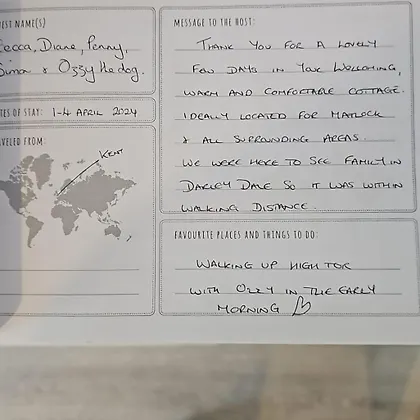 EST NAME(S)
ecca, Diane, Penny,
Simon & Ozzy the dog.
TES OF STAY: 1-4 APRIL 2024
AVELED FROM:
KENT
MESSAGE TO THE HOST:
THANK YOU FOR A LOVELY
FEW DAYS IN YOUR WELCOMING,
WARM AND COMFORTABLE COTTAGE.
IDEALLY LOCATED FOR MATLOCK
& ALL SURROUNDING AREAS.
WE WERE HERE TO SEE FAMILY IN
DARLEY DALE SO IT WAS WITHIN
WALKING DISTANCE.
FAVOURITE PLACES AND THINGS TO DO:
WALKING UP HIGH TOR
WITH OZZY IN THE EARLY
MORNING